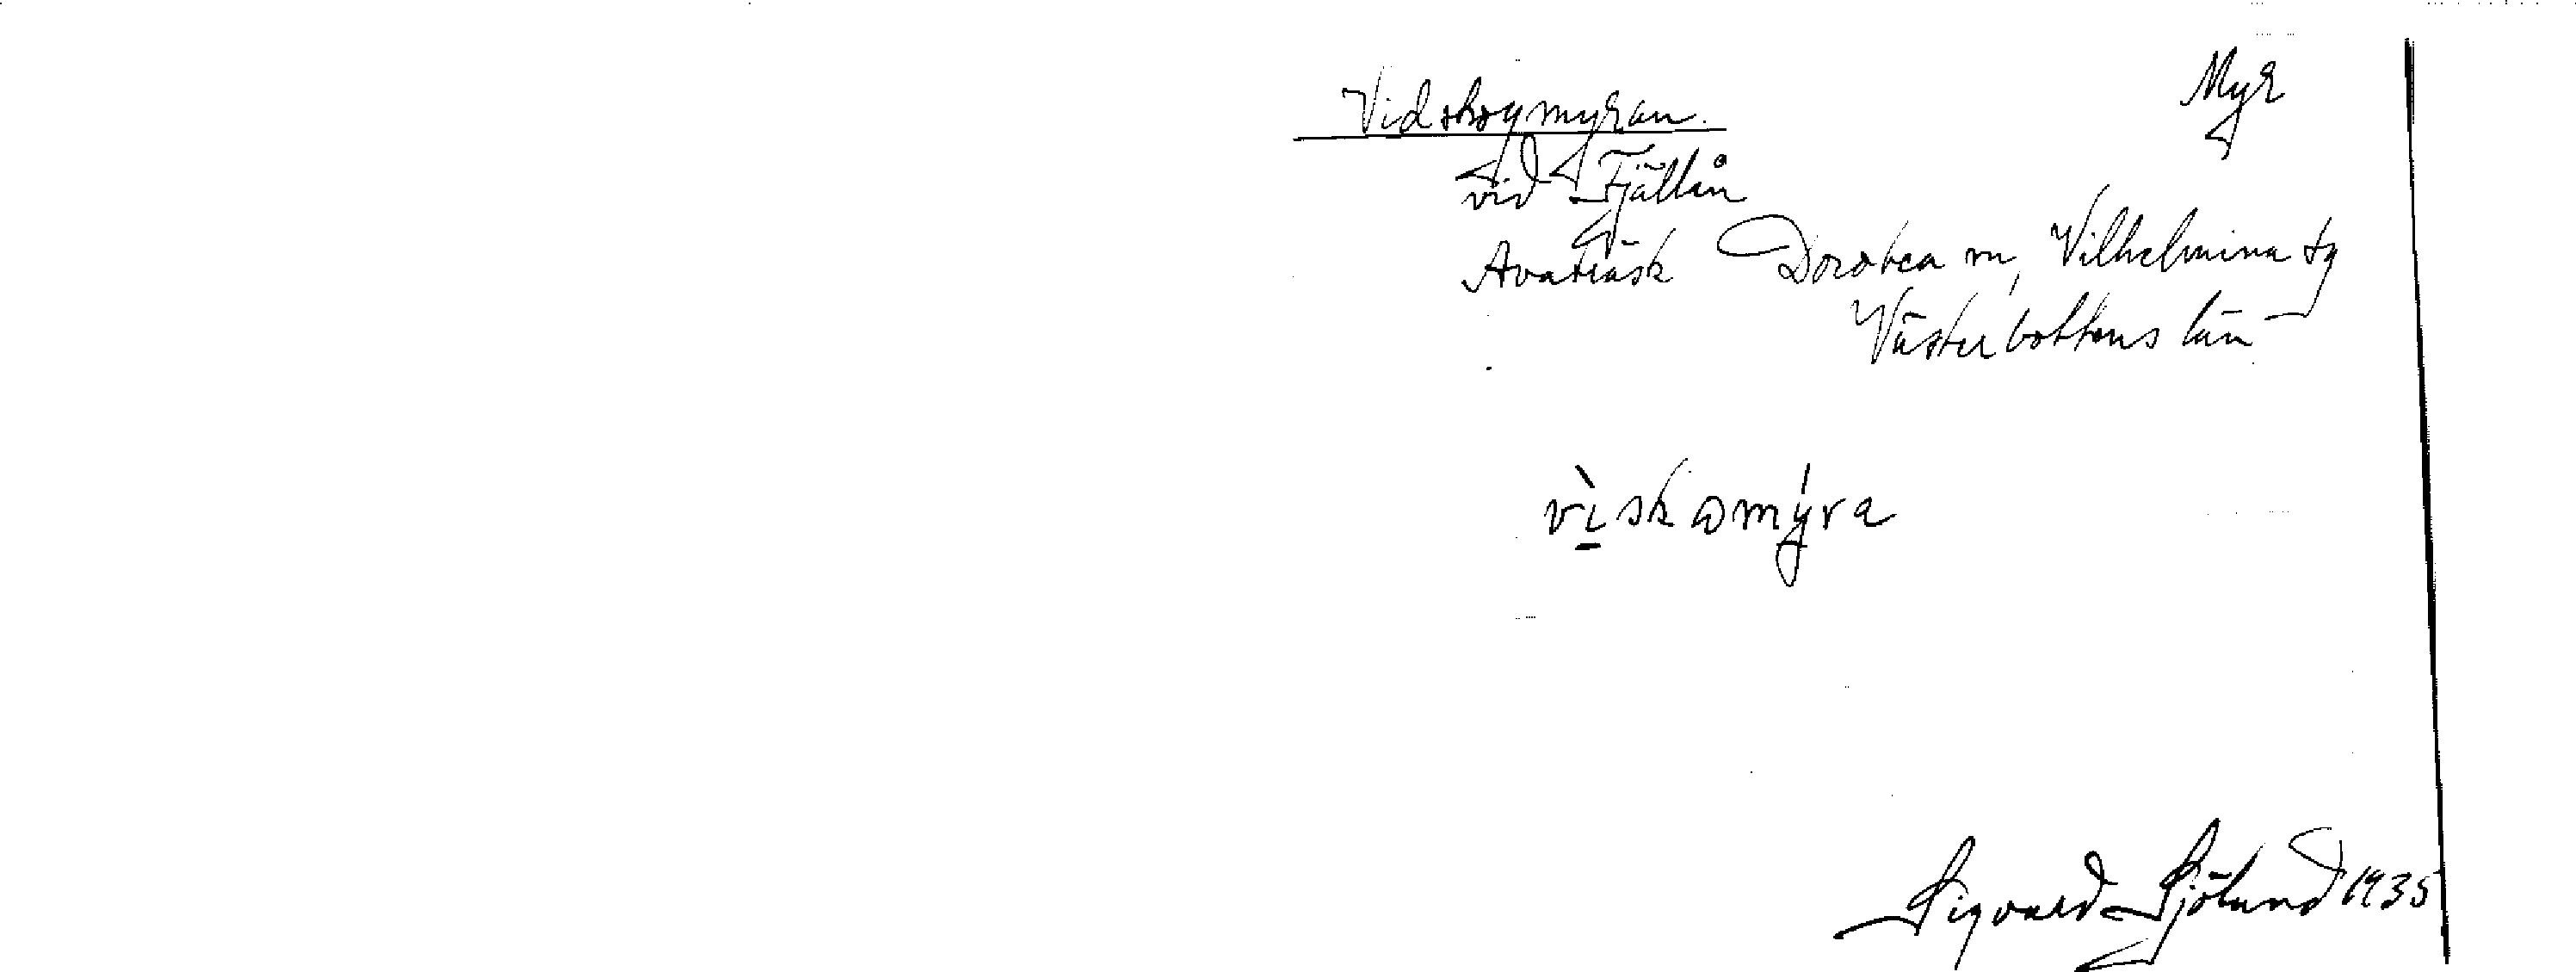 Vidskogmyran. Myr
vid Fjällån
Avaträsk Dorotea sn, Vilhelmina tg
Västerbottens län
vìskωmýra
Sigvard Sjölund 1935